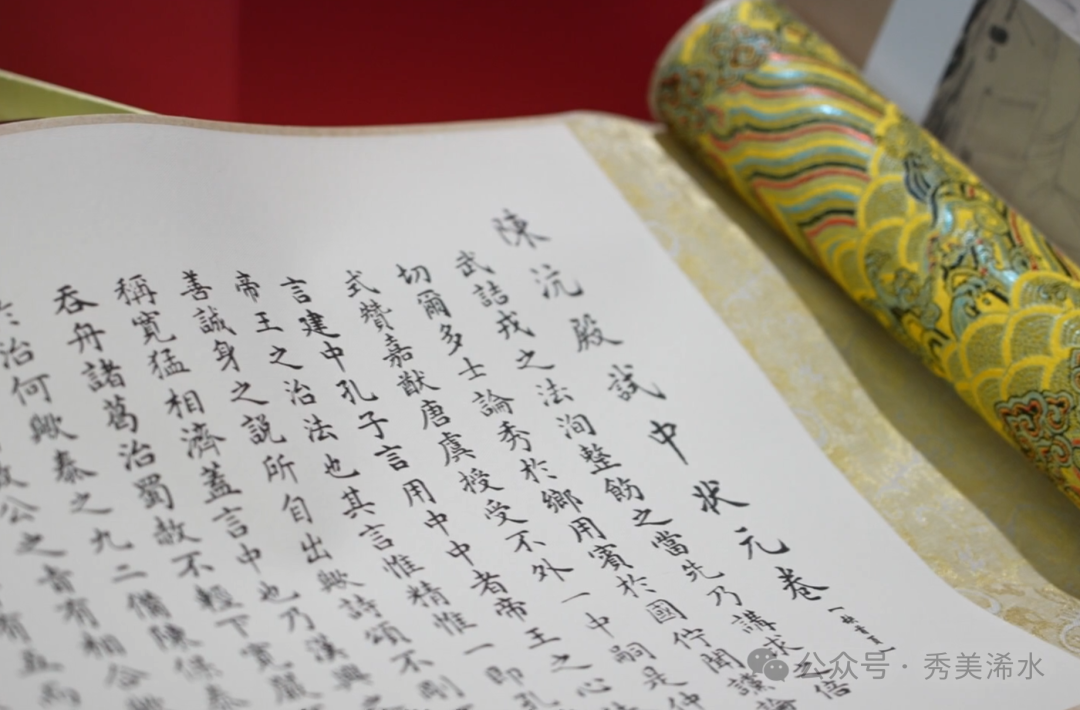 陳沆殿試中狀元卷
武詰戎之法洵整飭之當先乃講求之倍
切爾多士論秀於鄉用賓於國佇聞讜論
式贊嘉猷唐虞授受不外一中嗣是仲
言建中孔子言用中中者帝王之心
帝王之治法也其言惟精惟一即孔
善誠身之説所自出歟詩頌不剛
稱寬猛相濟蓋言中也乃漢興
吞舟諸葛治蜀赦不輕下寬嚴
治何歟泰之九二備陳保泰
公之 有相合歟
有五而
公众号·秀美浠水